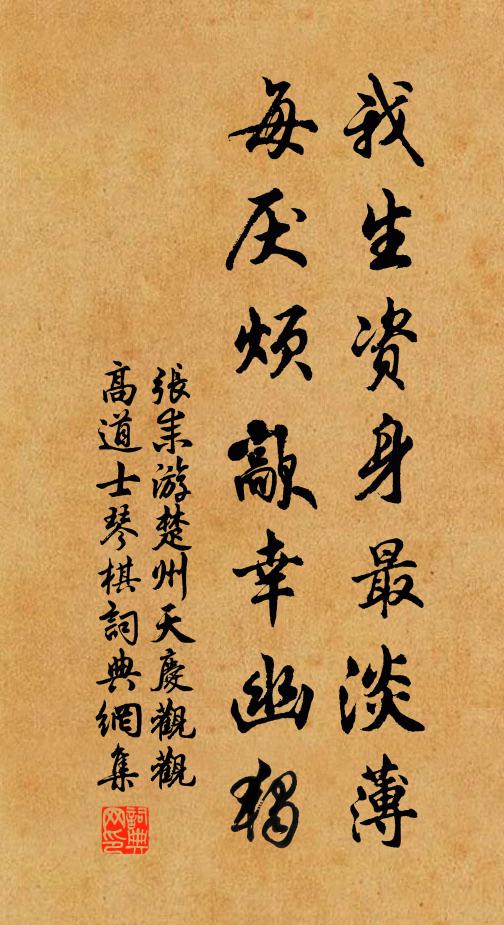 我生资身最淡薄
每厌烦歊幸幽獨
張耒游楚州天慶觀觀
高道士琴棋詞典網集
詞典
网印